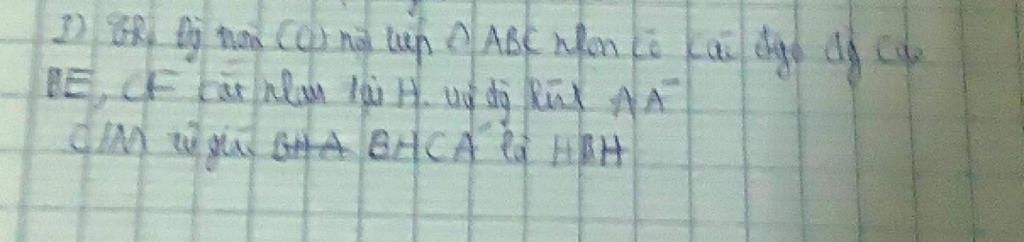 2) đg tròn (O) nội tiếp △ ABC nhọn có các đg cao
BE, CF cắt nhau tại H. vẽ đg kính AA'
C/M tứ giác BHCA' là HBH